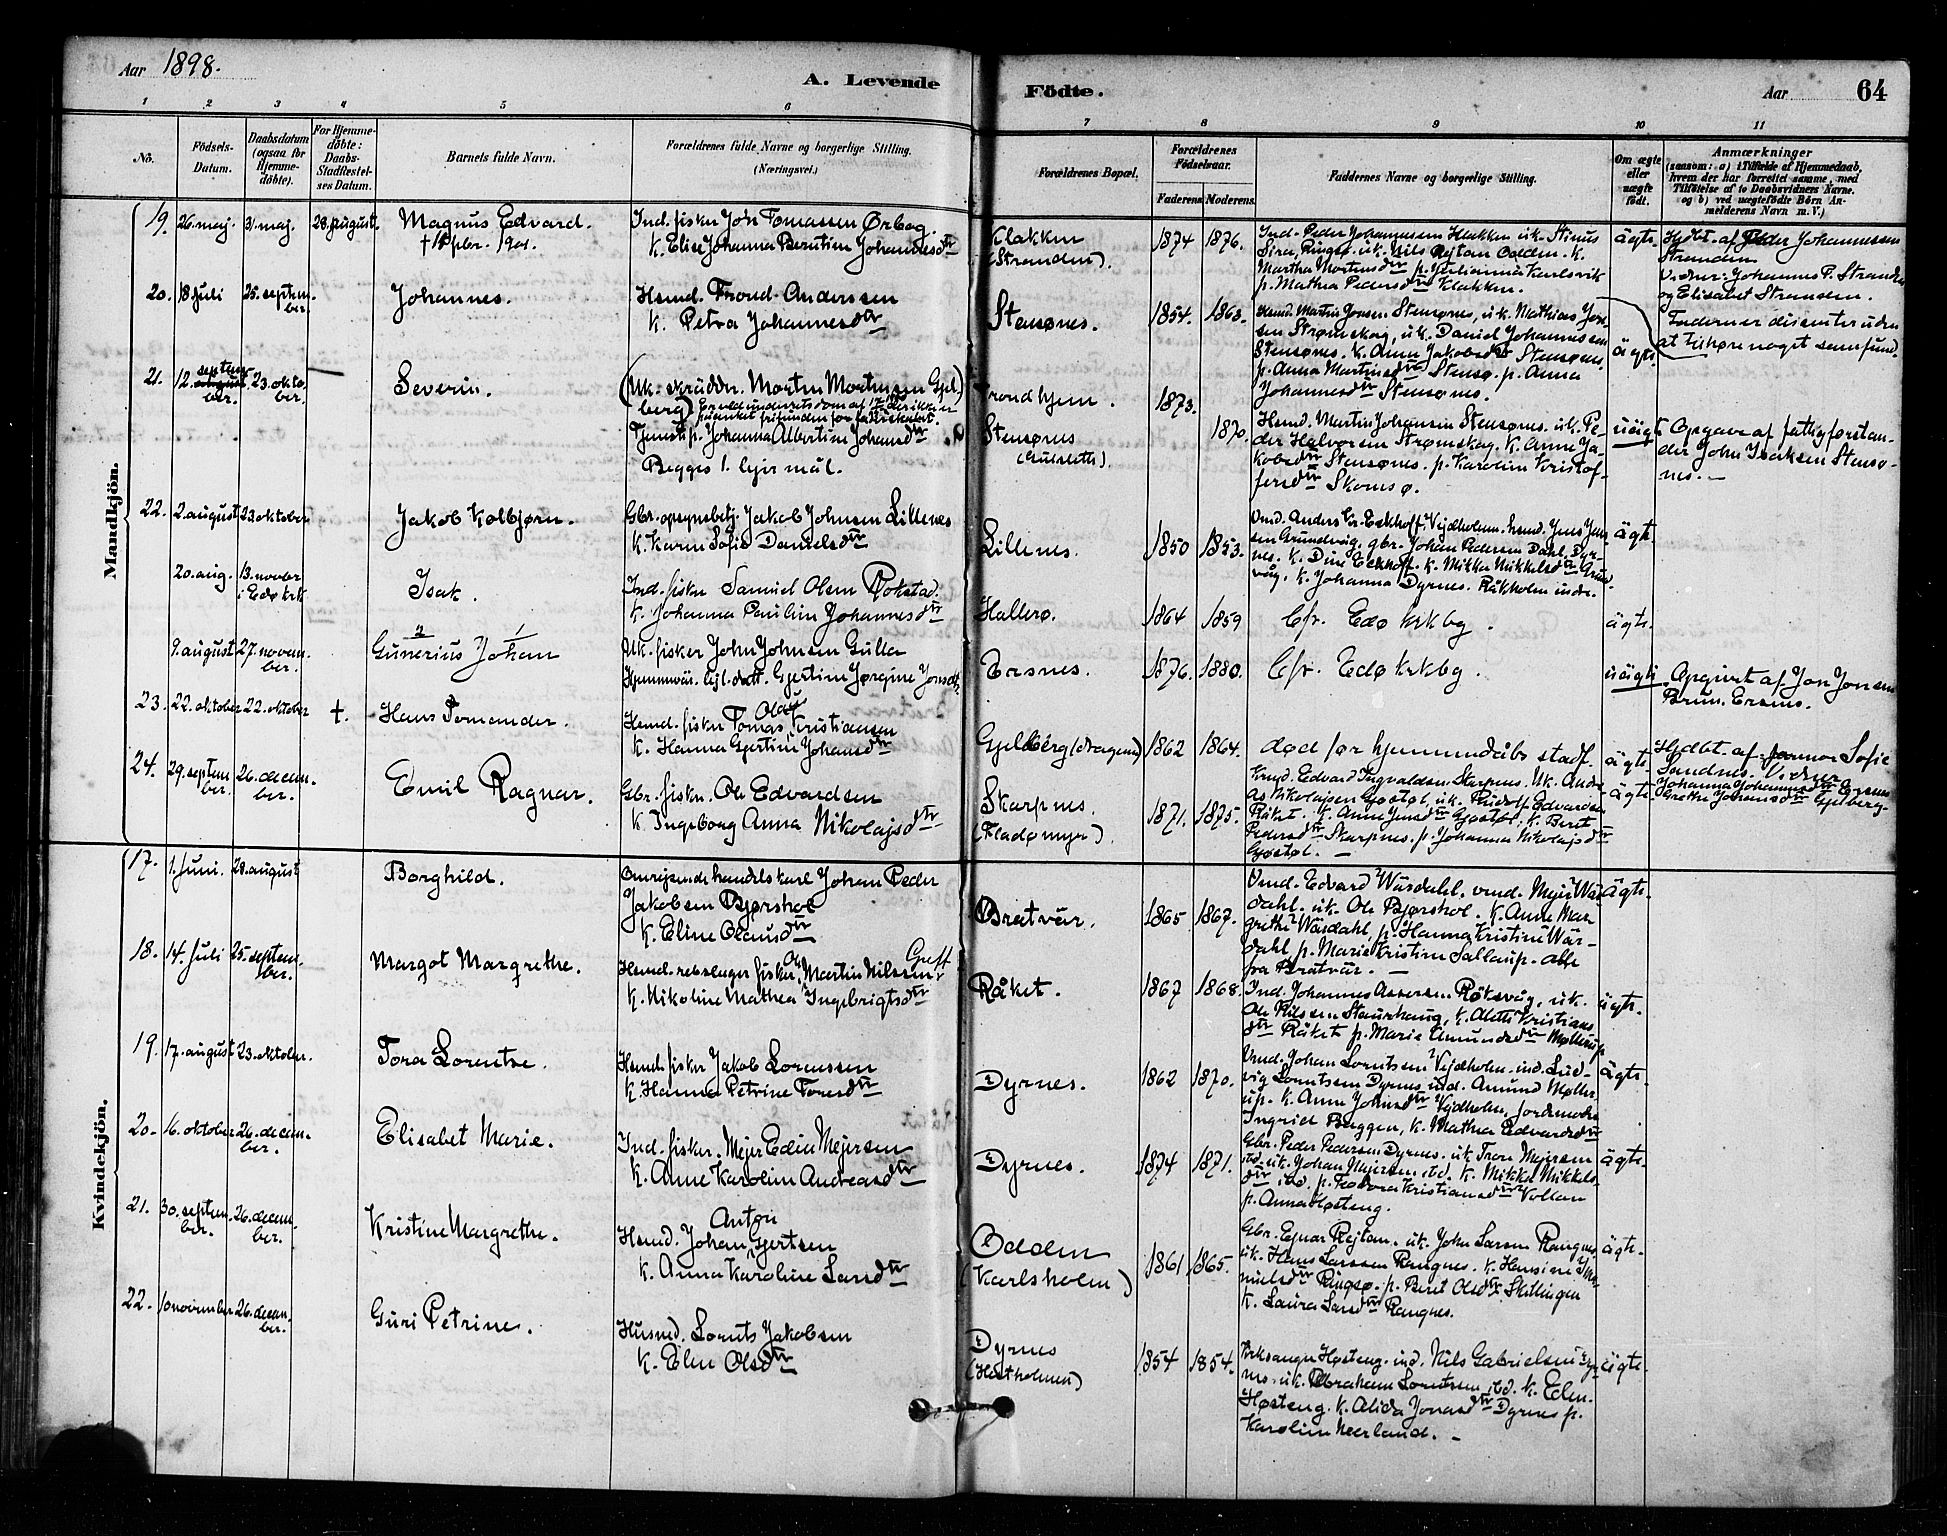 Aar 1898.
A. Levende
Födte.
Aar
64
1 2 3 4 5 6 7 8 9 10 11
No.
Födsels-
Datum.
Daabsdatum
(ogsaa for
Hjemme-
döbte).
For Hjemme-
döbte:
Daabs-
Stadfestel-
ses Datum.
Barnets fulde Navn.
Forældrenes fulde Navne og borgerlige Stilling.
(Næringsvei.)
Forældrenes Bopæl.
Forældrenes
Födselsaar.
Faderens Moderens
Faddernes Navne og borgerlige Stilling.
Om ægte
eller
uægte
födt.
Anmærkninger
(saasom: a) i Tilfælde af Hjemmedaab,
hvem der har forrettet samme, med
Tilföielse af to Daabsvidners Navne,
og b) ved uægtefödte Börn An-
melderens Navn m. V.)
Mandkjön.
19. 26. maj. 31. maj. 28. august.
Magnus Edvard.
Ind. fisker Joh Tomassen Ørbog.
K. Elise Johanna Berntine Johannesdtr
Klakken
(Stranden).
1874 1876.
Ind. Peder Johannessen Klakken uk. Stinus
Martha Mortensdtr p. Julianna Karlsvik
p. Mathea Pedersdtr Klakken.
ägte
Hjdbt. af Peder Johannessen
Stranden
Vidner: Johannes P. Stranden
og Elisabet Stransen.
20. 18 juli 25. septem-
ber.
Johannes.
Husmd. Trond Anderssen
K. Petra Johannesdtr
Stensønes.
1854. 1863.
Husmd. Martin Jonsen Stensønes, uk. Mathias Jon-
sen Strømskag, uk. Daniel Johannessen
Stensønes. K. Anne Jakobsdtr Stensønes
p. Anna Martinsdtr Stensø. p. Anna
Johannesdtr Stensønes.
ägte
Faderen er dissenter uden
at tilhøre noget samfund.
21. 12. septem-
ber. 23. okto-
ber.
Severin.
(Uk. skrädder Morten Mortensen Gjel-
berg)
Tjenestp. Johanna Albertine Johansdtr
Begges 1. lejermål.
Trondhjem.
Stensønes
1873.
1870.
Husmd. Martin Johansen Stensønes. uk. Pe-
der Halvorsen Strømskag. K. Anne Ja-
kobsdtr Stensønes. p. Karolin Kristof-
fersdtr Skomsø.
uägte
Opgave af fattigforstan-
der John Isaksen Stensø-
nes. —
22. 2. august 23. oktober
Jakob Kolbjørn.
Gbr. opsynsbetj. Jakob Johnsen Lillenes
K. Karen Sofie Danielsdtr
Lillenes.
1850 1853.
Vmd. Anders Kr. Eckhoff, Vejdholmen. husmd. Jens Jen-
sen Grundvåg, gbr. Johan Pedersen Dahl, Dyr-
nes. K. Dine Eckhoff. K. Mikka Mikkelsdtr Grund-
våg. K. Johanna Dyrnes. Råkholm indre.
ägte.
20. aug. 13. novbr
i Edø krk
Isak.
Ind. fisker Samuel Olsen Rokstad.
K. Johanna Pauline Johannesdtr
Hallerø.
1864 1859
Cfr. Edø krkbg.
ägte.
9. august 27. novem-
ber.
2 1
Gunerius Johan
Uk. fisker John Johnsen Gullen
Hjemmevär. lejl. datt. Gjertine Jørgine Jonsdtr.
Ersnes.
1876. 1880.
Cfr. Edø krkbg
uägte
Opgivet af Jon Jonsen
Bruun. Ersnes.
23. 22. oktober 22. oktober †.
Hans Tomander.
Olaf
Husmd. fisker Tomas Kristiansen
K. Hanna Gjertine Johansdtr
Gjelberg (Dragene)
1862 1864.
død før hjemmedåbs stadf.
ägte
Hjdbt. af mor Sofie
Sandnes. Vidner
Johanna Johannesdtr Ersnes
Grethe Johansdtr Gjelberg.
24. 29. septem-
ber. 26. decem-
ber.
Emil Ragnar.
Gbr. fisker. Ole Edvardsen
K. Ingeborg Anna Nikolajsdtr
Skarpnes.
(Fladømyr).
1871. 1875.
Husmd. Edvard Ingvaldsen Skarpnes. Uk. Andre-
as Nikolajsen Gøstøl, uk. Rudolf Edvardsen
Råket. K. Anne Jensdtr Gjøstøl. K. Beret
Pedersdtr Skarpnes. p. Johanna Nikolajsdtr
Gjøstøl. —
ägte
Kvindekjön.
17. 1. juni. 28. august
Borghild.
Omrejsende handelskarl Johan Peder
Jakobsen Bjørshol
K. Eline Olausdtr
Bratvär.
1865. 1867.
Vmd. Edvard Wårdahl. vmd. Mejer Wår-
dahl. uk. Ole Bjørshol. K. Anne Mar-
grethe Wårdahl, p. Hanna Kristine Wår-
dahl p. Marie Kristine Sallaup. alle
fra Bratvär. —
ägte
18. 14. juli 25. septem-
ber.
Margot Margrethe.
Husmd. rebslager fisker, Martin Nilssen
K. Nikoline Mathea Ingebrigtsdtr
Råket.
1867 1868.
Ind. Johannes Assersen Røksvåg, uk.
Ole Nilssen Staurhaug, K. Alette Kristians-
dtr Råket p. Marie Amundsdtr Møllerup
ägte.
19. 17. august 23. oktober.
Tora Lorentse.
Husmd. fisker Jakob Lorenssen
K. Hanna Petrine Toresdtr
Dyrnes.
1862 1870.
Vmd. Johan Lorntsen Vejdholm. ind. Lud-
vig Lorntsen Dyrnes, ind. Amund Møller-
up. K. Anne Johnsdtr Vejdholm, jordmoder
Ingrid Buggen, K. Mathea Edvardsdtr
ägte.
20. 16. oktober 26. decem-
ber.
Elisabet Marie.
Ind. fisker. Mejer Edin Mejersen
K. Anne Karoline Andreasdtr
Dyrnes.
1874 1871.
Gbr. Peder Pedersen Dyrnes. uk. Tron Mejersen
ibd. uk. Johan Mejersen ibd. K. Mikka Mikkels-
dtr ibd. p. Teodora Kristiansdtr Vollan
p. Anna Høsteng.
ägte.
21. 30. septem-
ber. 26. decem-
ber.
Kristine Margrethe.
Anton
Husmd. Johan Gjertsen
K. Anna Karoline Larsdtr
Odden
(Karlsholm)
1861 1865.
Gbr. Ejnar Rejtan. uk. John Larsen Rangnes.
uk. Hans Larssen Rangnes. K. Hansine
Ringsø. p. Beret Olsdtr Skillingen
K. Laura Larsdtr Rangnes.
ägte.
22. 10 november 26. decem-
ber.
Guri Petrine.
Husmd. Lornts Jakobsen
K. Elen Olsdtr
Dyrnes
(Hestholmen)
1854 1854.
Kirksanger Høsteng. ind. Nils Gabrielsen
uk. Abraham Lorntsen ibd. K. Elen
Høsteng. K. Alida Jonasdtr Dyrnes p.
Karoline Neerland. —
ägte.